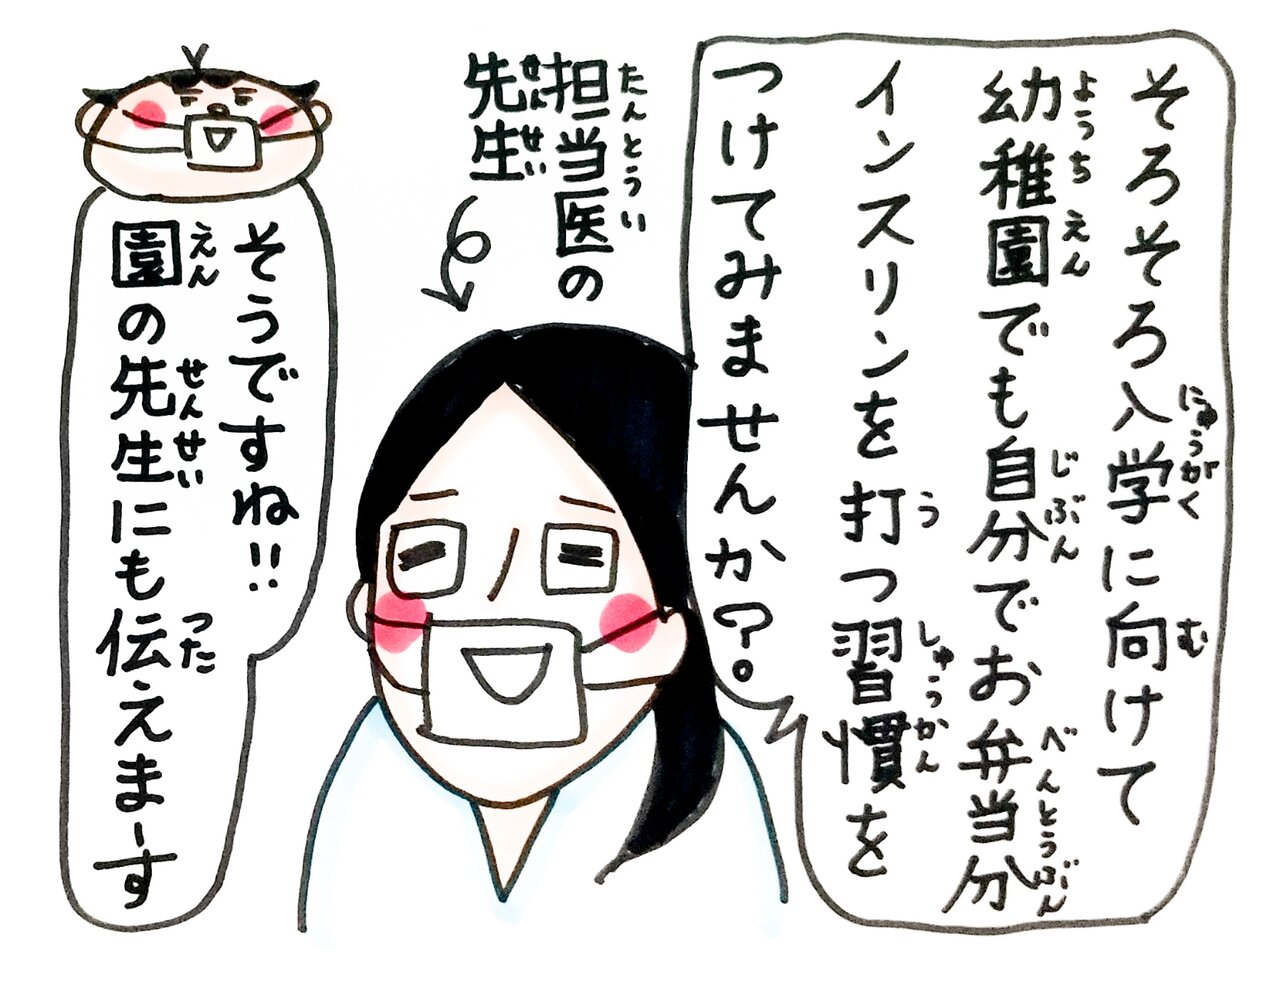 そろそろ入学に向けて
幼稚園でも自分でお弁当分
インスリンを打つ習慣を
つけてみませんか?。
にゅうがく
む
ようちえん
じぶん
べんとうぶん
う
しゅうかん
担当医の
先生
たんとうい
せんせい
そうですね!!
園の先生にも伝えまーす
えん
せんせい
つた